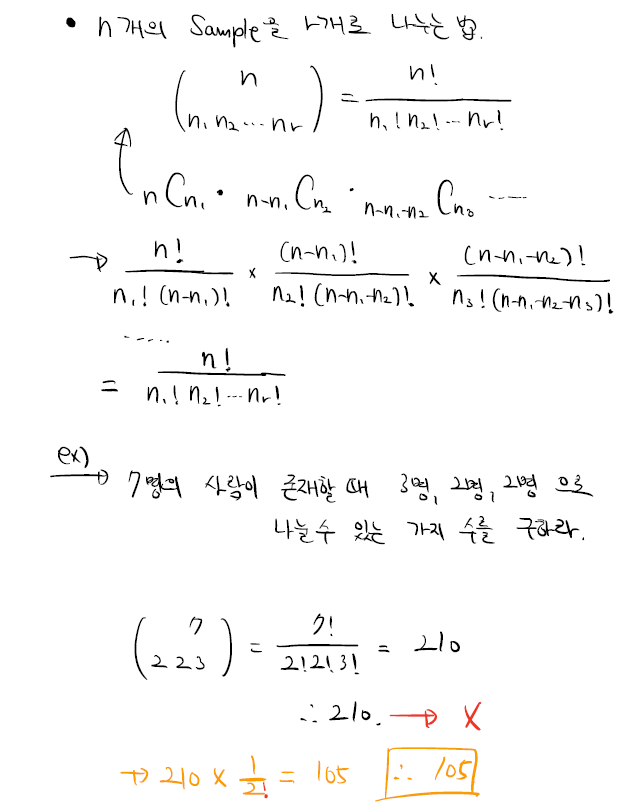 • n개의 Sample을 r개로 나누는 법.
(n / n₁ n₂ ⋯ nᵣ) = n! / n₁! n₂! ⋯ nᵣ!
nCn₁ · n-n₁Cn₂ · n-n₁-n₂Cn₃ ⋯⋯
→ n! / n₁! (n-n₁)! × (n-n₁)! / n₂! (n-n₁-n₂)! × (n-n₁-n₂)! / n₃! (n-n₁-n₂-n₃)!
⋯⋯
= n! / n₁! n₂! ⋯ nᵣ!
ex)
→ 7명의 사람이 존재할 때 3명, 2명, 2명 으로
나눌 수 있는 가지 수를 구하라.
(7 / 2 2 3) = 7! / 2!2!3! = 210
∴ 210. → X
→ 210 × 1/2! = 105 ∴ 105